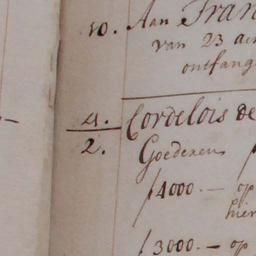 10. Aan Fran
van 23 aen
ontfang
4. Cordelois de
2. Goederen
f 4000.— op
hier
f 3000.— op